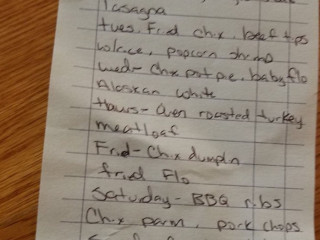 lasagna
tues. Frid chix. beef tips
w/rice, popcorn shrimp
wed- Chx pot pie. baby flo
Alaskan white
thurs- oven roasted turkey
meatloaf
Frid- Chix dumpln
fried Flo
Saturday- BBQ ribs
Chix parm, pork chops